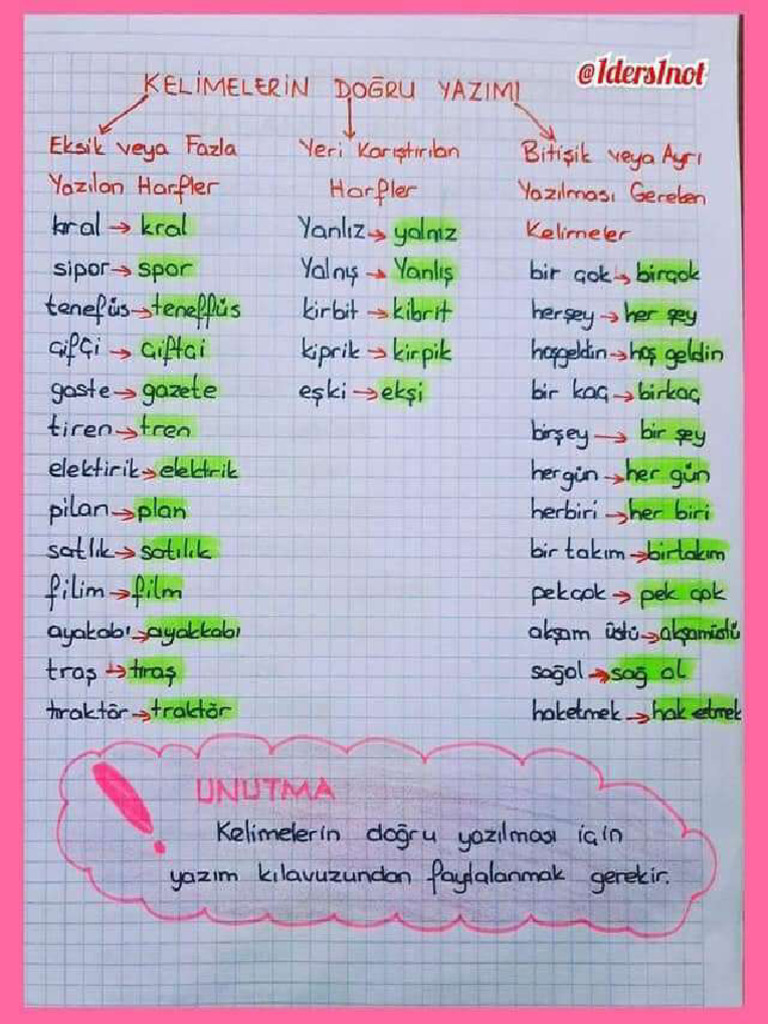 @1ders1not
KELİMELERİN DOĞRU YAZIMI
Eksik veya Fazla
Yazılan Harfler
kıral → kral
sipor → spor
tenefüs → teneffüs
çifçi → çiftçi
gaste → gazete
tiren → tren
elektirik → elektrik
pilan → plan
satlık → satılık
filim → film
ayakabı → ayakkabı
traş → tıraş
tıraktör → traktör
Yeri Karıştırılan
Harfler
Yanlız → yalnız
Yalnış → Yanlış
kirbit → kibrit
kiprik → kirpik
eşki → ekşi
Bitişik veya Ayrı
Yazılması Gereken
Kelimeler
bir çok → birçok
herşey → her şey
hoşgeldin → hoş geldin
bir kaç → birkaç
birşey → bir şey
hergün → her gün
herbiri → her biri
bir takım → birtakım
pekçok → pek çok
akşam üstü → akşamüstü
sağol → sağ ol
haketmek → hak etmek
UNUTMA
Kelimelerin doğru yazılması için
yazım kılavuzundan faydalanmak gerekir.